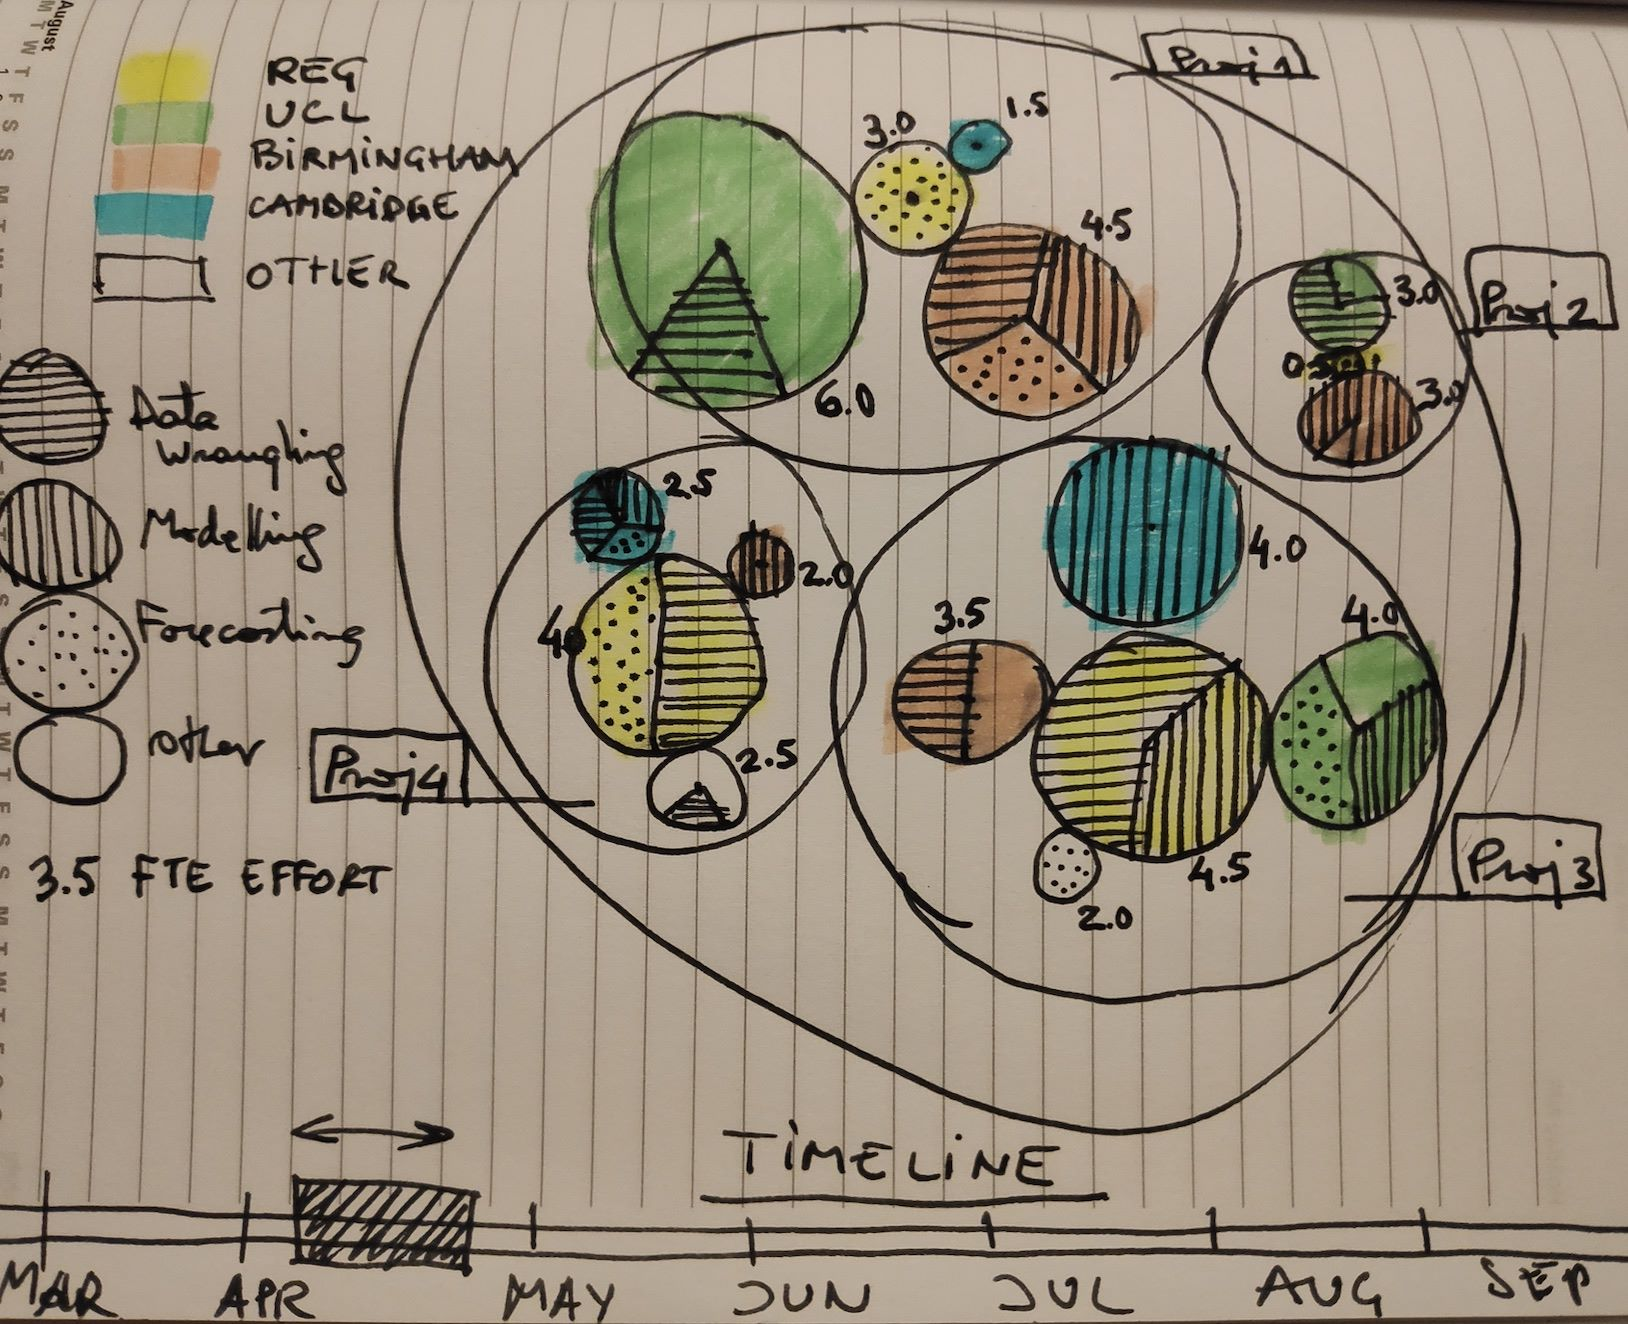 August
M T W T F S S M T W T F S S M T W T F S S M T W T F S S M T W T F
REG
UCL
BiRMiNGHAM
CAMBRiDGE
OTHER
Data
Wrangling
Modelling
Forecasting
other
3.5 FTE EFFORT
Proj 1
3.0
1.5
4.5
6.0
Proj 2
3.0
0.5
3.0
2.5
2.0
4.0
2.5
Proj 4
4.0
3.5
4.0
4.5
2.0
Proj 3
TiMELiNE
MAR
APR
MAY
JUN
JUL
AUG
SEP